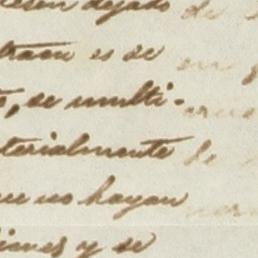 dejado
es se
, se multi-
terialmente
ue no hayan
iones y se